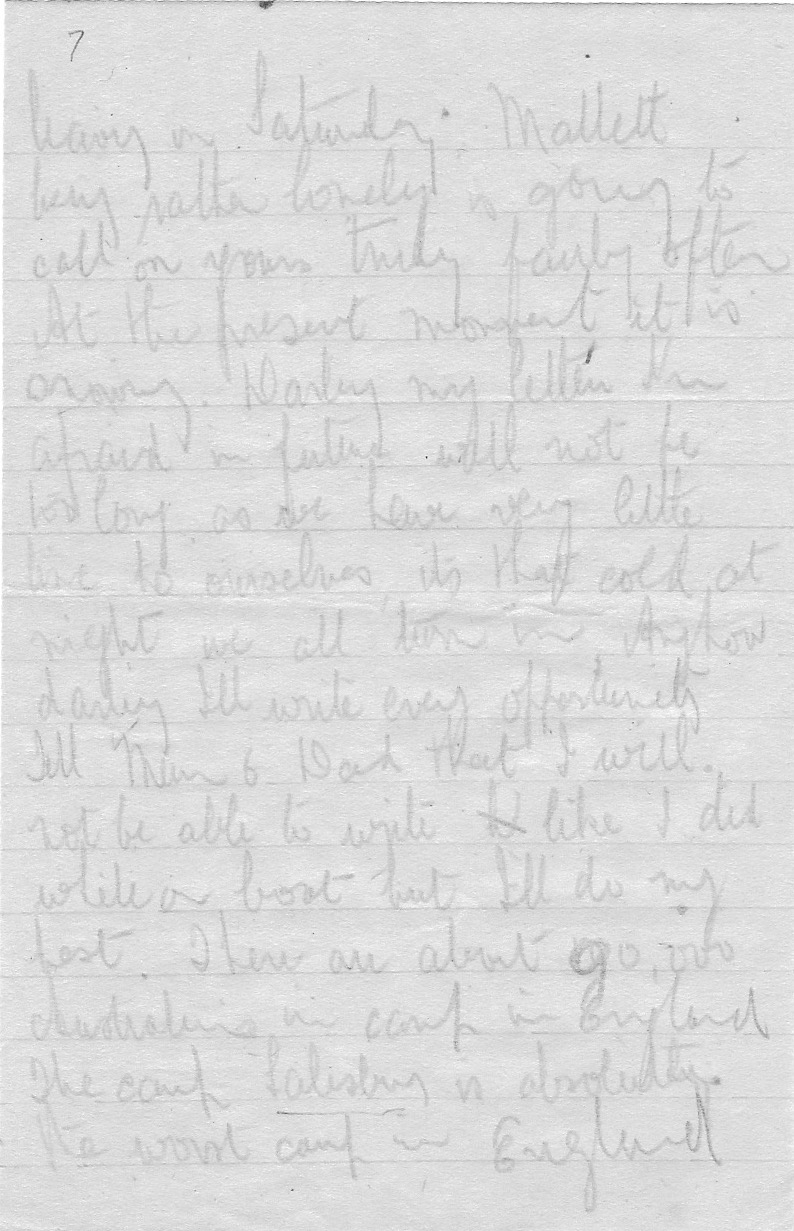 7
leaving on Saturday. Mallett
being rather lonely is going to
call on yours truly fairly often
At the present moment it is
snowing. Darling my letters I'm
afraid in future will not be
too long as we have very little
time to ourselves, its that cold at
night we all turn in. Anyhow
darling I'll write every opportunity
Tell Mum & Dad that I will.
not be able to write like I did
while on boat but I'll do my
best. There are about 90,000
Australians in camp in England
The camp Salisbury is absolutely.
the worst camp in England